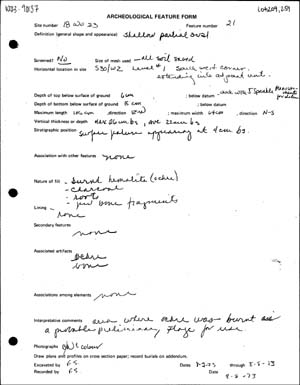 ARCHEOLOGICAL FEATURE FORM
Site number 18 WO 23 Feature number 21
Definition (general shape and appearance) shallow partial oval
Screened? No Size of mesh used all soil saved
Horizontal location of site S30/W2 Level #1, south west corner,
extending into adjacent unit.
Depth of top below surface of 6cm ; below datum
Depth of bottom below surface of ; below datum
Maximum length ; direction ; maximum width 64cm ; direction N-S
Vertical thickness or depth
Stratigraphic position surface feature appearing at 4cm bs.
Association with other features none
Nature of fill - burnt hematite (ochre)
- charcoal
- roots
- few bone fragments
Lining - none
Secondary features
none
Associated artifacts
ochre
bone
Associations among elements none
Interpretative comments area where ochre was burnt as
a probable preliminary stage for use
Photographs b/w & colour
Draw plans and profiles on cross section paper; record burials on addendum.
Excavated by F.S. Dates through 8-8-73
Recorded by F.S. Date 8-8-73